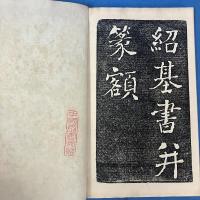 紹基書并
篆額